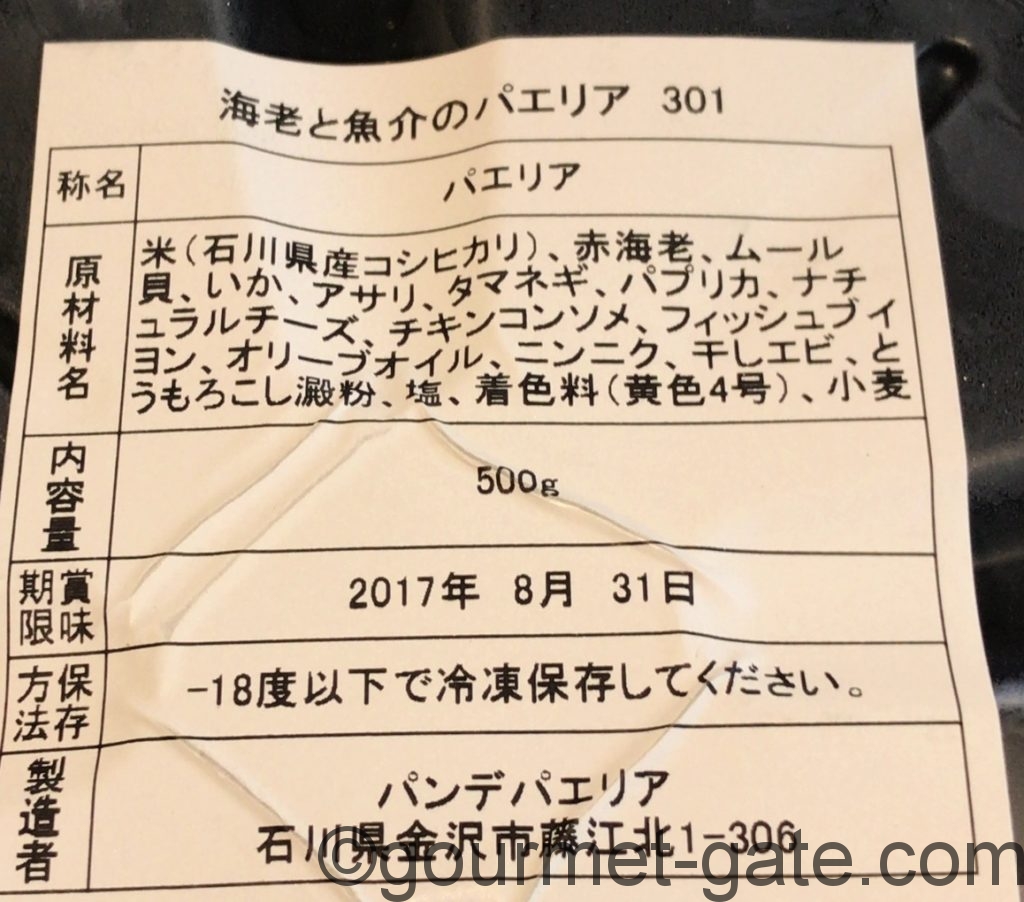 海老と魚介のパエリア 301
称名 パエリア
原材料名
米(石川県産コシヒカリ)、赤海老、ムール
貝、いか、アサリ、タマネギ、パプリカ、ナチ
ュラルチーズ、チキンコンソメ、フィッシュブイ
ヨン、オリーブオイル、ニンニク、干しエビ、と
うもろこし澱粉、塩、着色料(黄色4号)、小麦
内容量 500g
賞味期限 2017年 8月 31日
保存方法 -18度以下で冷凍保存してください。
製造者
パンデパエリア
石川県金沢市藤江北1-306
©gourmet-gate.com